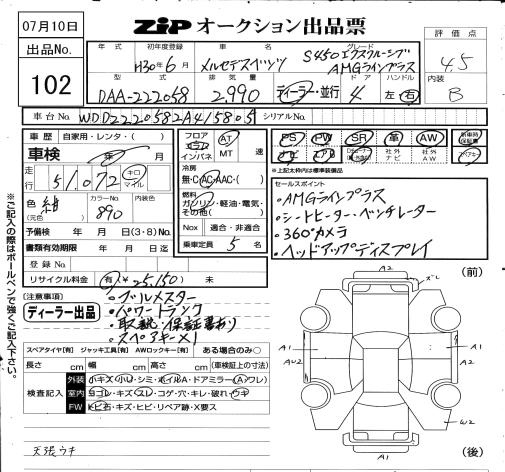 07月10日
ZiPオークション出品票
評価点
4.5
出品No.
102
年式 初年度登録 車名 グレード
H30年6月 メルセデスベンツ S450エクスクルーシブ AMGラインプラス
内装
B
型式 排気量 ドア ハンドル
DAA-222058 2,990 ディーラー・並行 4 左・右
車台No. WDD2220582A415805 シリアルNo.
車歴 自家用・レンタ・( )
車検 年 月
走行 51,072 キロ マイル
色(元色) 紺 カラーNo. 890 内装色
予備検 年 月 日(3・8)No.
書類有効期限 年 月 日迄
登録No.
リサイクル料金 有(¥25,150) 未
フロア コラム インパネ AT MT 速
冷房 無・C・AC・AAC・( )
燃料 ガソリン・軽油・電気・その他( )
Nox 適合・非適合
乗車定員 5 名
PS PW SR 革 AW 新車時保証書
ナビ エアB 社外ナビ 社外AW
*上記枠内は標準装備品
セールスポイント
・AMGラインプラス
・シートヒーター・ベンチレーター
・360°カメラ
・ヘッドアップディスプレイ
(注意事項)
ディーラー出品
・ブルメスター
・パワートランク
・取説・保証書あり
・スペアキー×1
スペアタイヤ[有] ジャッキ工具[有] AWロックキー[有] ある場合のみ○
長さ cm 幅 cm 高さ cm (車検証上の寸法)
検査記入
外装 小キズ・小U・シミ・ホイルA・ドアミラー(A・ワレ)
室内 ヨゴレ・キズ・スレ・コゲ・穴・キレ・破れ・ウキ
FW トビ石・キズ・ヒビ・リペア跡・X要ス
天張ウキ
※ご記入の際はボールペンで強くご記入下さい。
(前)
A2
A1
A1
A4U2
A1
W2
A2
A1
(後)